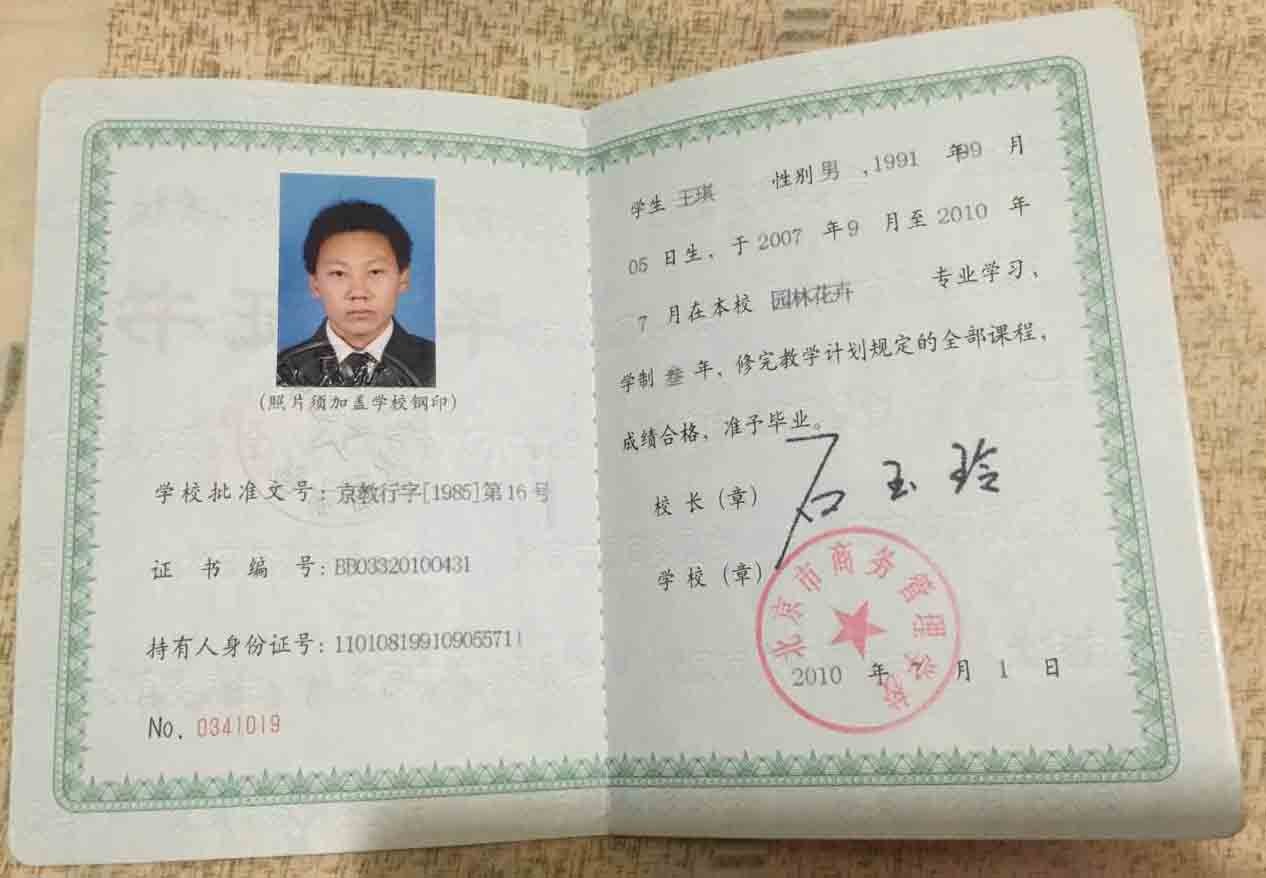 (照片须加盖学校钢印)
学校批准文号：京教行字[1985]第16号
证书编号：BB03320100431
持有人身份证号：110108199109055711
No. 0341019
学生 王琪 性别 男 ,1991 年 9 月
05 日生、于 2007 年 9 月至 2010 年
7 月在本校 园林花卉 专业学习、
学制 叁 年、修完教学计划规定的全部课程，
成绩合格，准予毕业。
校长（章） 石玉玲
学校（章）
北京市商务管理学校
2010 年 月 1 日